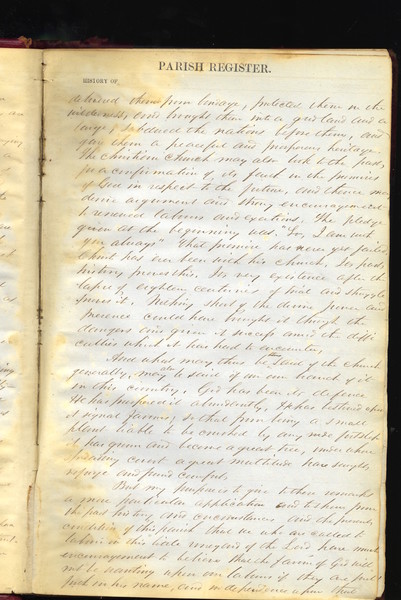 PARISH REGISTER.
HISTORY OF
delivered them from bondage, protected them in the
wilderness, and brought them into a good land and a
large, subdued the nations before them, and
gave them a peaceful and prosperous heritage.
The Christian Church may also look to the past,
for a confirmation of its faith in the promises
of God in respect to the future, and thence may
derive argument and strong encouragement
to renewed labors and exertions. The pledge
given at the beginning was. "Lo, I am with
you always" That promise has never yet failed
Christ has ever been with his Church. Its past
history proves this. Its very existence after the
lapse of eighteen centuries of trial and struggle
proves it. Nothing short of the divine power and
presence could have brought it through the
dangers and given it success amid the diffi
culties which it has had to encounter.
And what may thus be said of the Church
generally, may also be said of our own branch of it
in this country. God has been its defence
He has prospered it abundantly, He has bestowed upon
it signal favors, so that from being a small
plant liable to be crushed by any rude footstep
it has grown and become a great tree, under whose
covert a great multitude have sought
refuge and found comfort.
But my purpose is to give to these remarks
a more particular application and to show from
the past history and circumstances and the present
condition of this parish that we who are called to
labor in this little vineyard of the Lord have much
encouragement to believe that the favor of God will
not be wanting upon our labors if they are put
forth in his name, and in dependence upon that